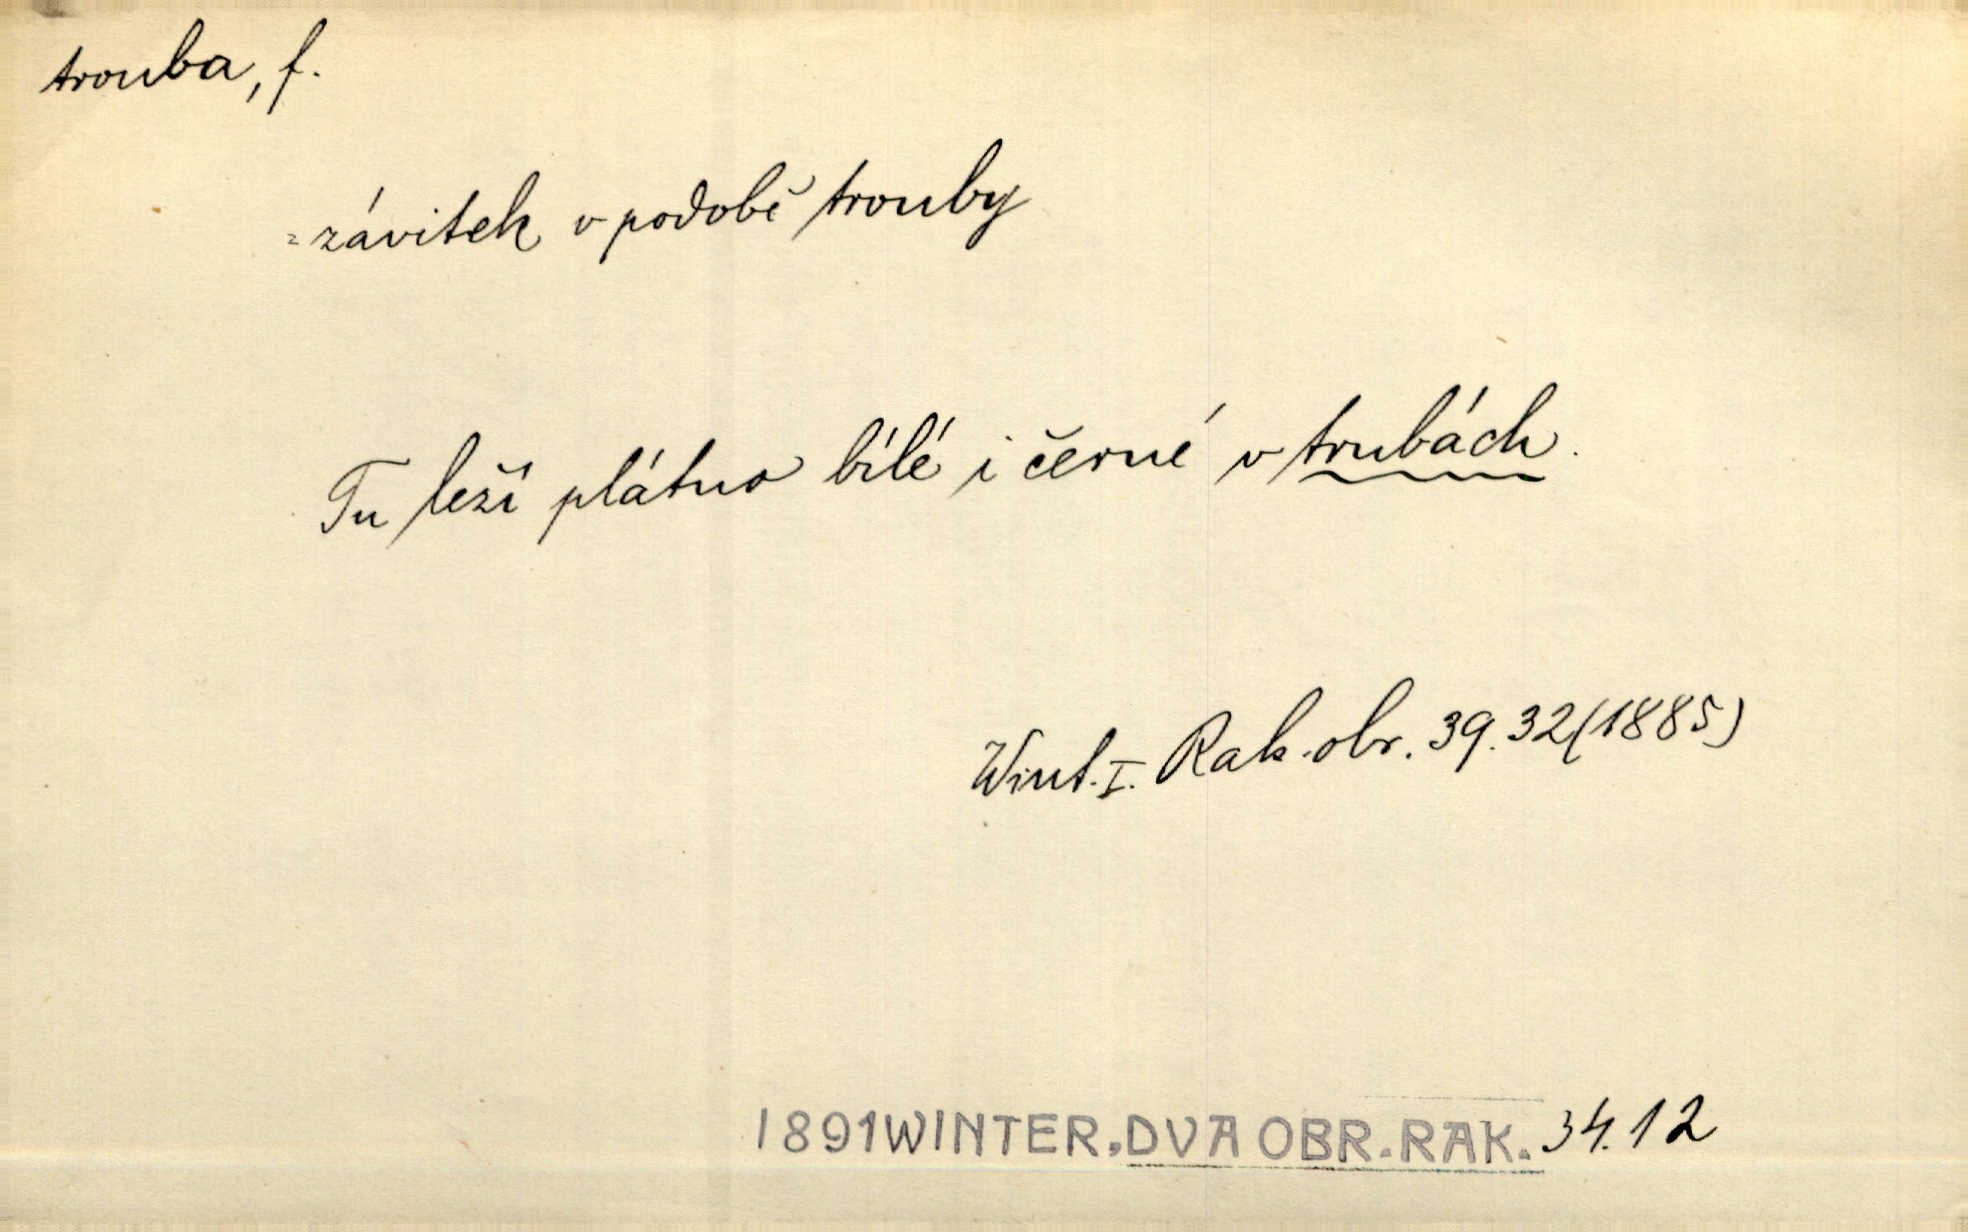 trouba, f.
= závitek v podobě trouby
Tu leží plátno bílé i černé v trubách.
Wint. I. Rak. obr. 39. 32 (1885)
1891 WINTER, DVA OBR. RAK. 34. 12